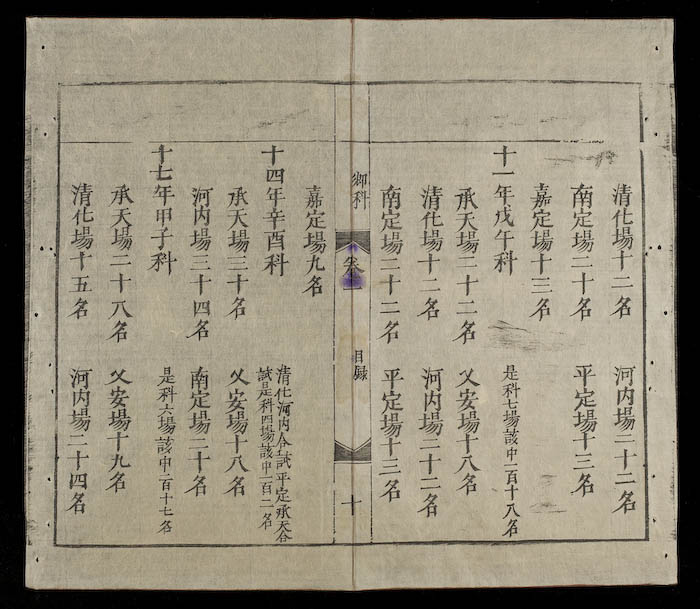 清化場十二名　河内場二十二名
南定場二十名　平定場十三名
嘉定場十三名
十一年戊午科　是科七場該中一百十八名
承天場二十二名　乂安場十八名
清化場十二名　河内場二十二名
南定場二十二名　平定場十三名
鄉科　卷一　目錄　十
嘉定場九名
十四年辛酉科　清化河内合試平定承天合
試是科四場該中一百二名
承天場三十名　乂安場十八名
河内場三十四名　南定場二十名
十七年甲子科　是科六場該中一百十七名
承天場二十八名　乂安場十九名
清化場十五名　河内場二十四名